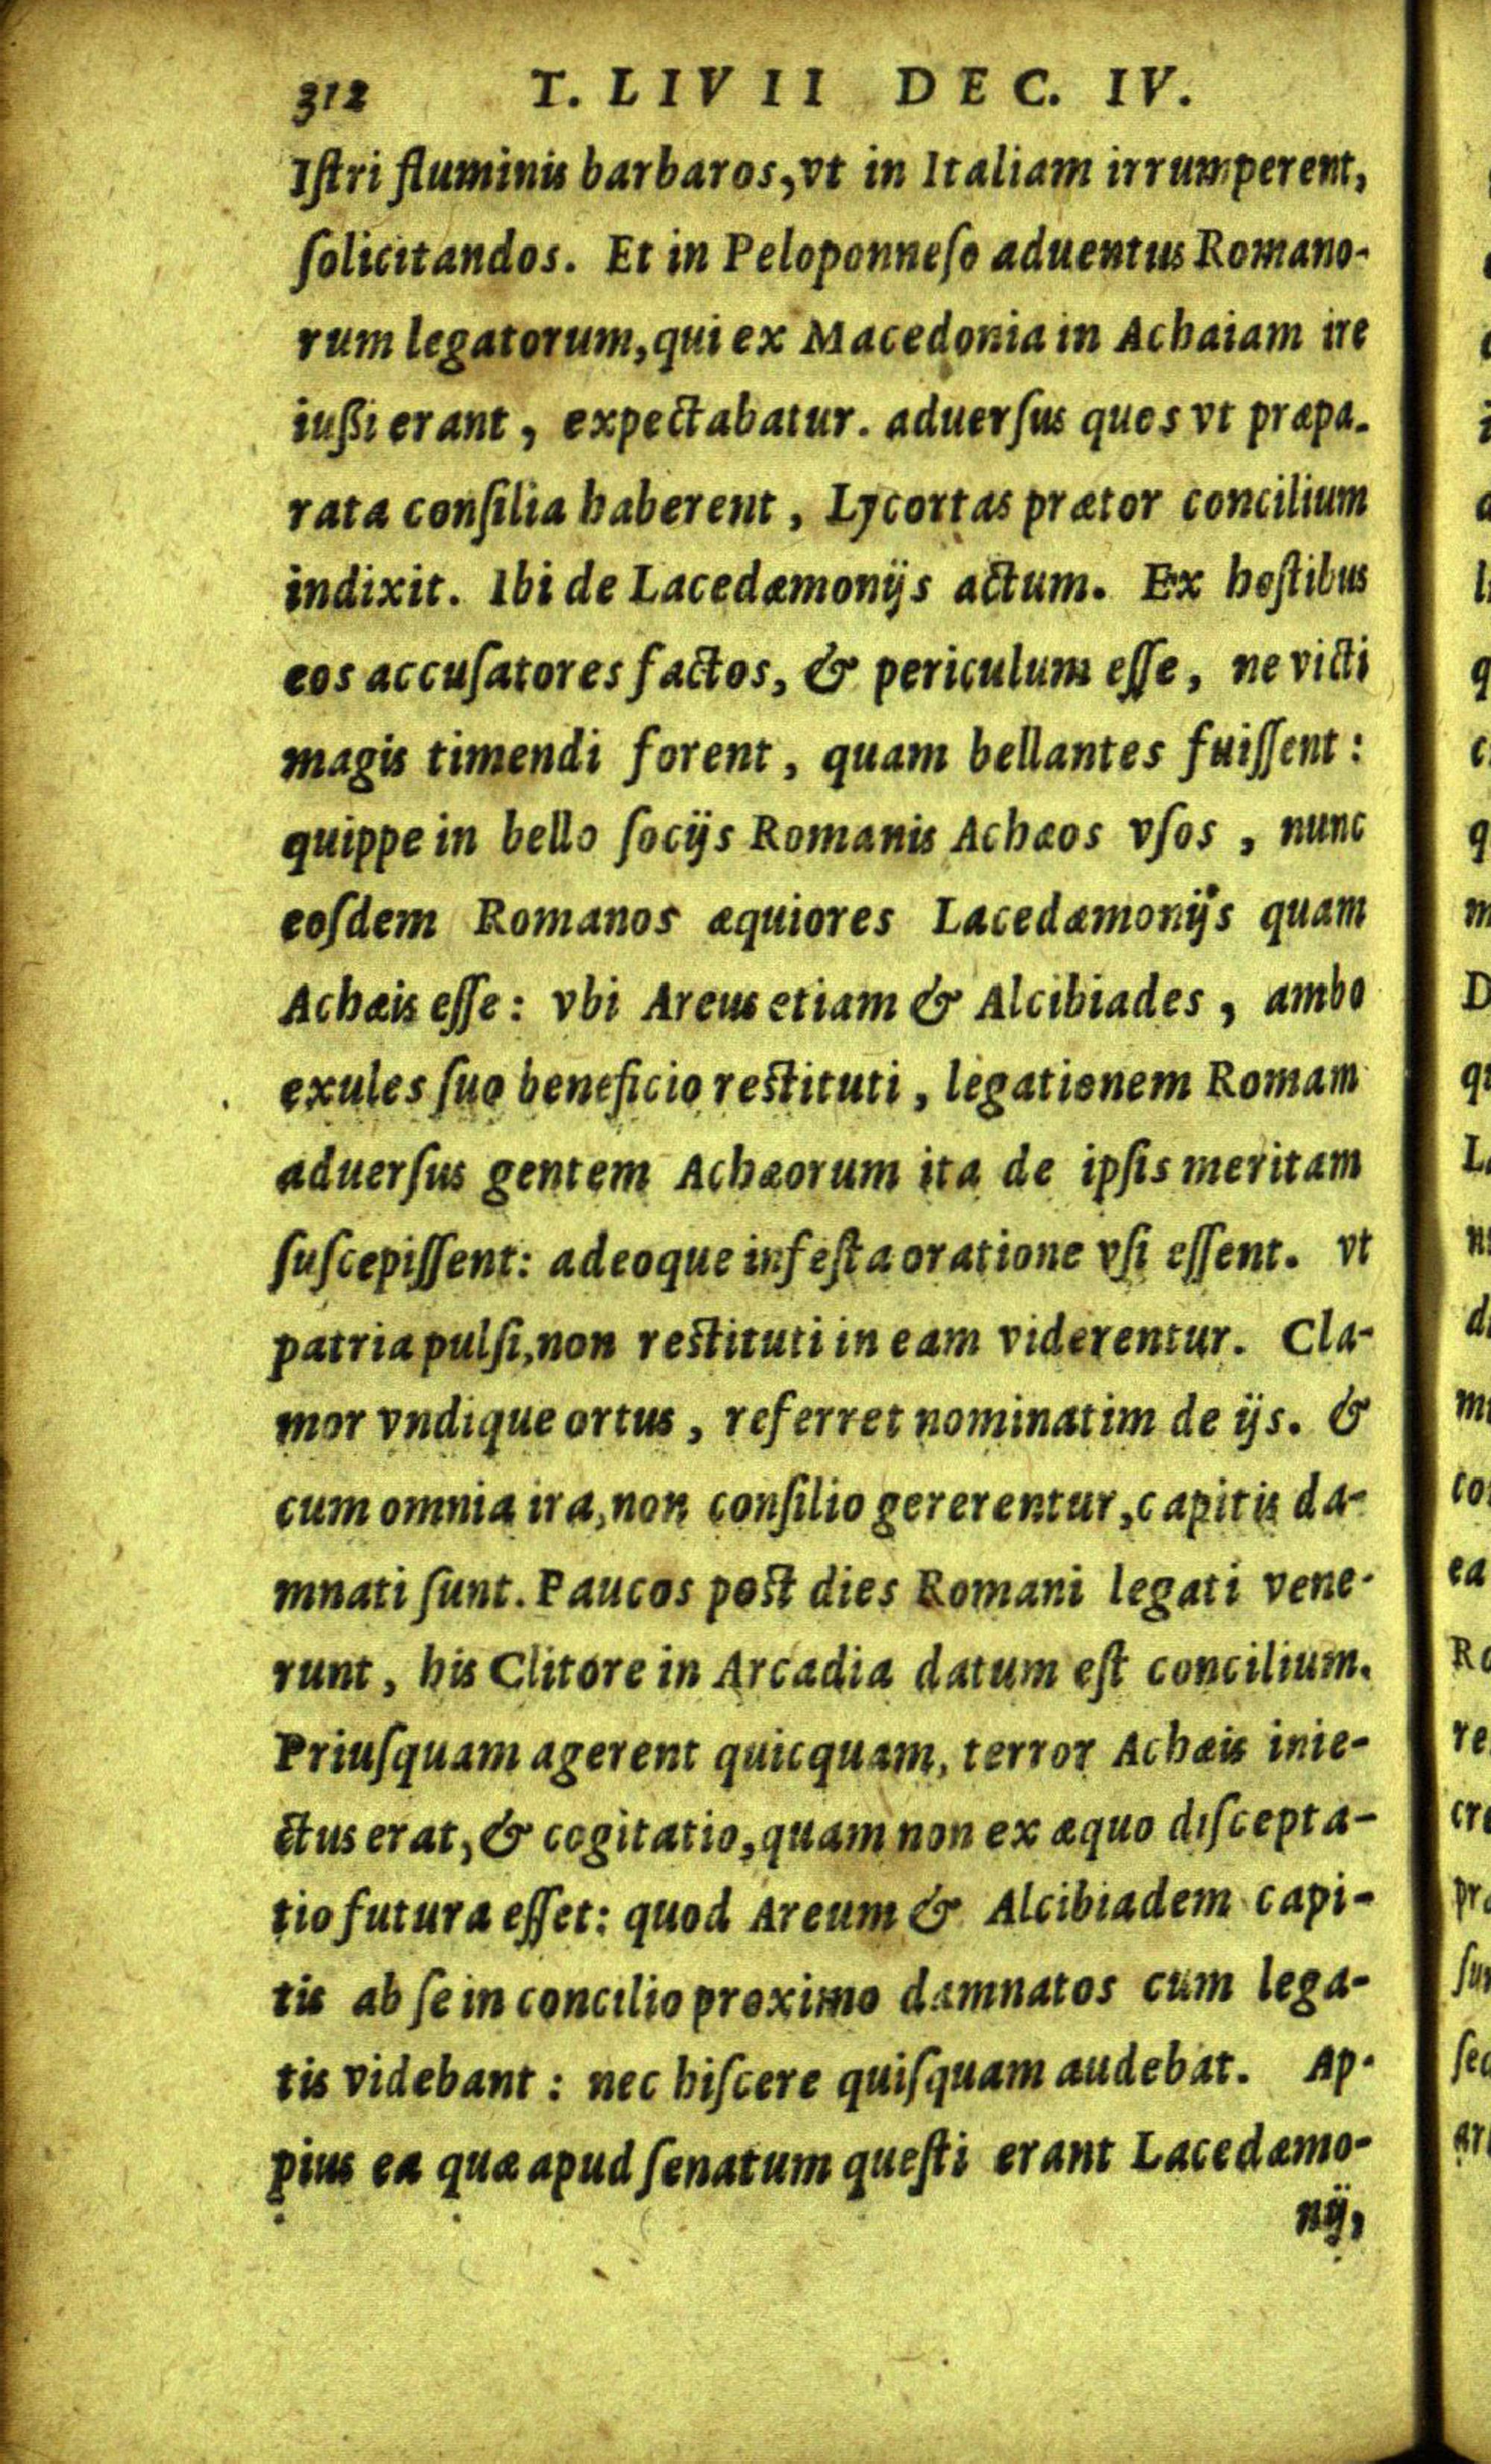 312 T. LIVII DEC. IV.
Iſtri fluminis barbaros, vt in Italiam irrumperent,
ſolicitandos. Et in Peloponneſo aduentus Romano-
rum legatorum, qui ex Macedonia in Achaiam ire
iußi erant, expectabatur. aduerſus quos vt præpa-
rata conſilia haberent, Lycortas prætor concilium
indixit. Ibi de Lacedæmonijs actum. Ex hoſtibus
eos accuſatores factos, & periculum eſſe, ne victi
magis timendi forent, quam bellantes fuiſſent:
quippe in bello ſocijs Romanis Achæos vſos, nunc
eoſdem Romanos æquiores Lacedæmonijs quam
Achæis eſſe: vbi Areus etiam & Alcibiades, ambo
exules ſuo beneficio reſtituti, legationem Romam
aduerſus gentem Achæorum ita de ipſis meritam
ſuſcepiſſent: adeoque infeſta oratione vſi eſſent. vt
patria pulſi, non reſtituti in eam viderentur. Cla-
mor vndique ortus, referret nominatim de ijs. &
cum omnia ira, non conſilio gererentur, capitis da-
mnati ſunt. Paucos poſt dies Romani legati vene-
runt, his Clitore in Arcadia datum eſt concilium.
Priuſquam agerent quicquam, terror Achæis inie-
ctus erat, & cogitatio, quam non ex æquo diſcepta-
tio futura eſſet: quod Areum & Alcibiadem capi-
tis ab ſe in concilio proximo damnatos cum lega-
tis videbant: nec hiſcere quiſquam audebat. Ap-
pius ea quæ apud ſenatum queſti erant Lacedæmo-
nij,